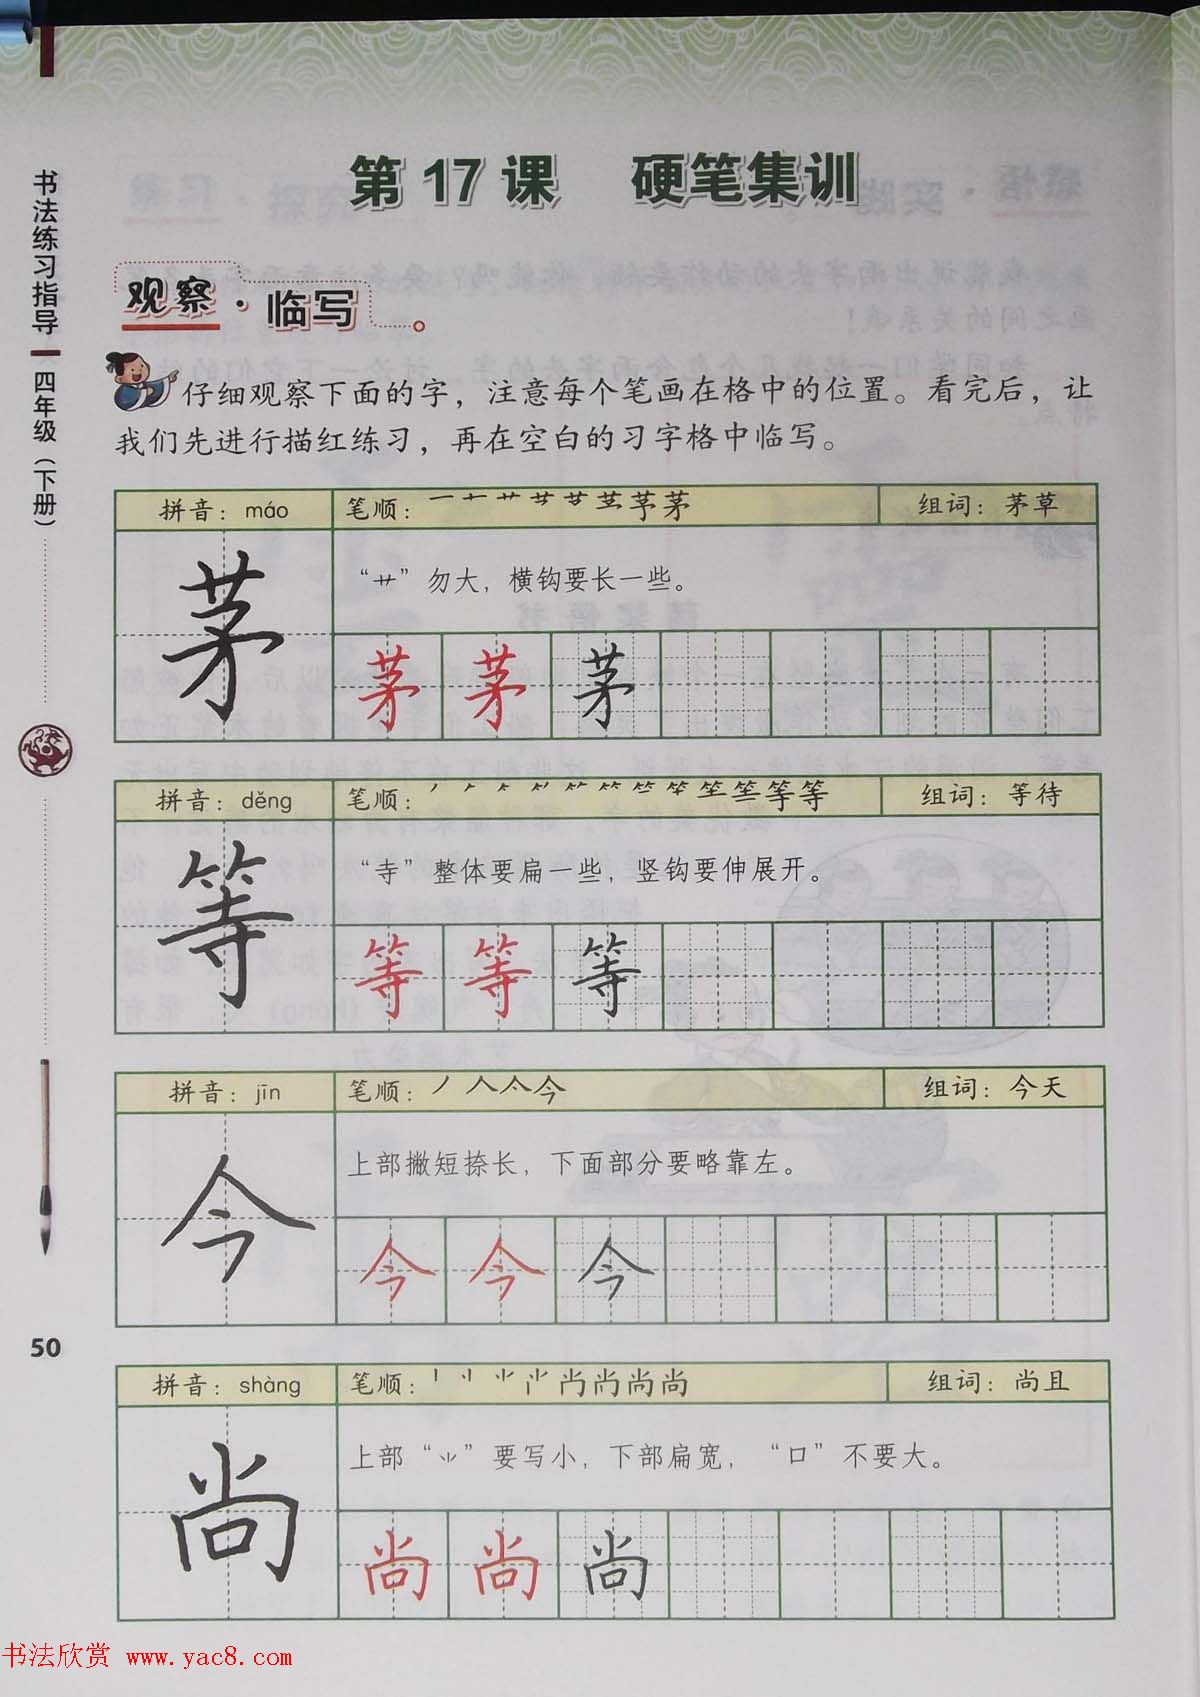 书法练习指导
四年级（下册）
第 17 课 硬笔集训
观察·临写
仔细观察下面的字，注意每个笔画在格中的位置。看完后，让
我们先进行描红练习，再在空白的习字格中临写。
拼音：máo 笔顺： 组词：茅草
茅
“艹”勿大，横钩要长一些。
茅 茅 茅
拼音：děng 笔顺： 组词：等待
等
“寺”整体要扁一些，竖钩要伸展开。
等 等 等
拼音：jīn 笔顺： 组词：今天
今
上部撇短捺长，下面部分要略靠左。
今 今 今
50
拼音：shàng 笔顺： 组词：尚且
尚
上部“⺌”要写小，下部扁宽，“口”不要大。
尚 尚 尚
书法欣赏 www.yac8.com